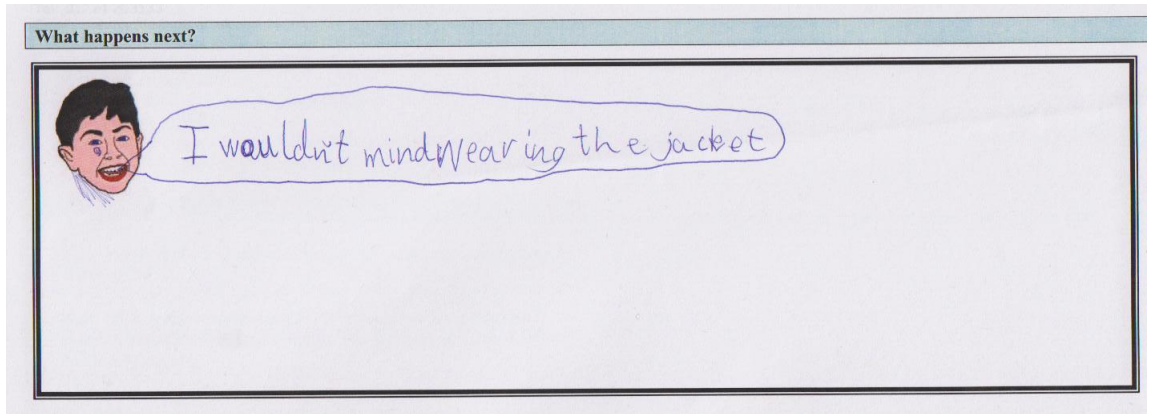 What happens next?
I wouldn't mind wearing the jacket